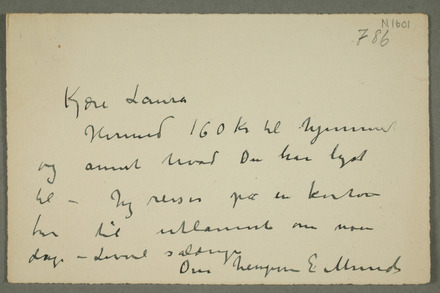 N 1601
786
Kjære Laura
Hermed 160 Kr til hjemmet
og annet hvad Du har lyst
til – Jeg reiser på en kortere
tur til utlannet om noen
dage –
Din hengivne E Munch